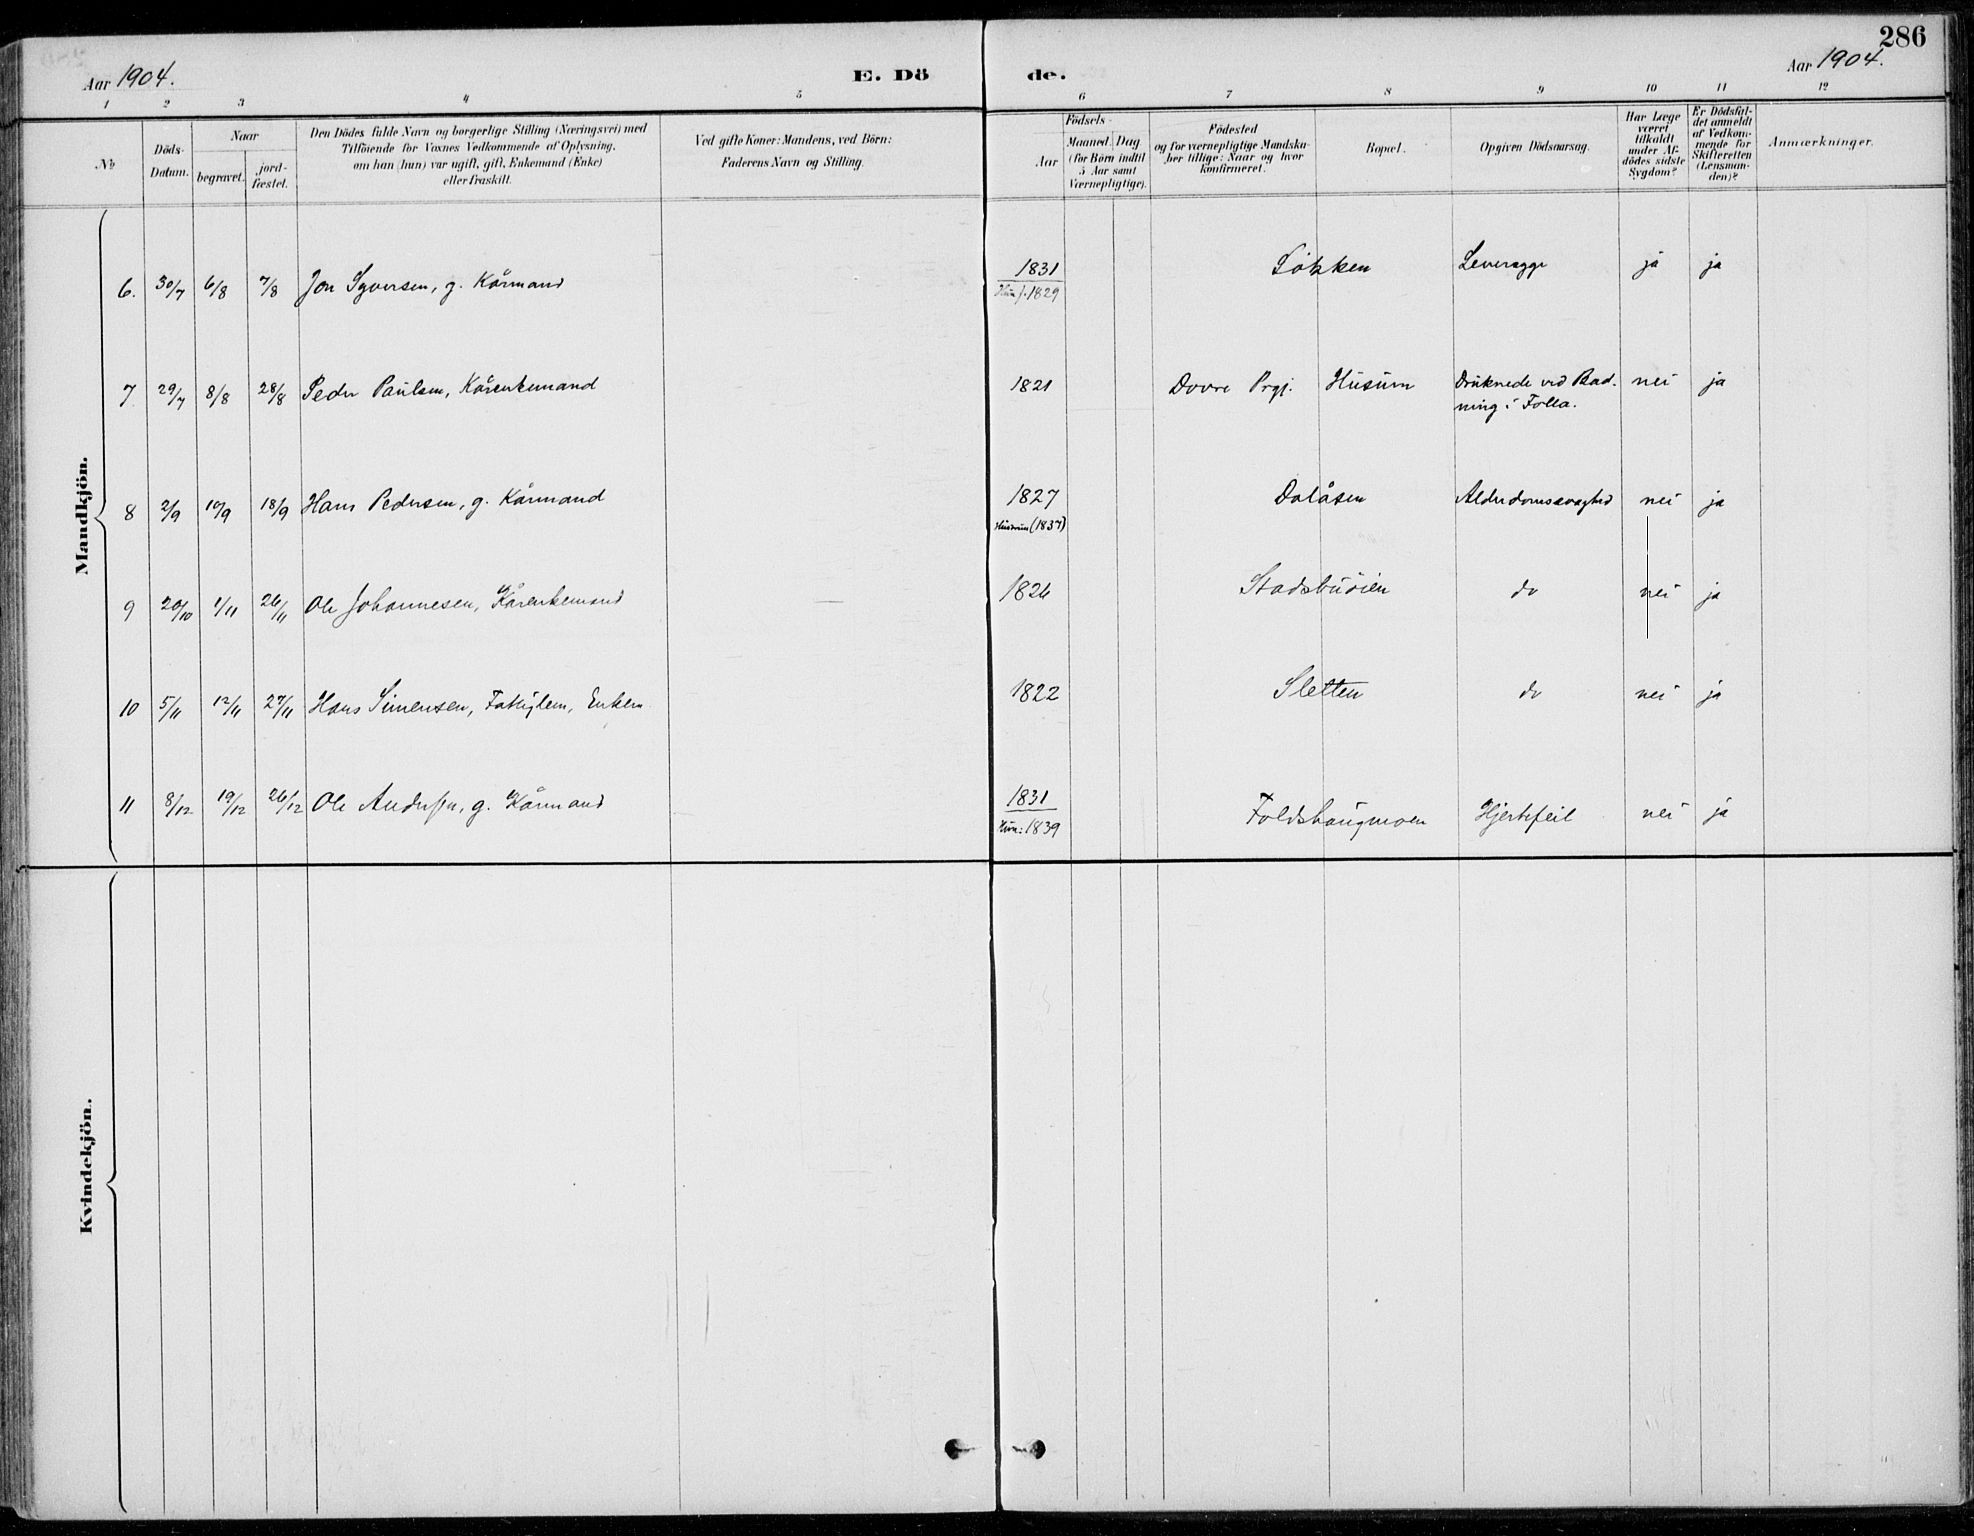 286
Aar 1904.
E. Dö
de.
Aar 1904.
1 2 3 4 5 6 7 8 9 10 11 12
No
Döds-
Datum.
Naar
begravet.
jord-
fæstet.
Den Dödes fulde Navn og borgerlige Stilling (Næringsvei) med
Tilföiende for Voxnes Vedkommende af Oplysning,
om han (hun) var ugift, gift, Enkemand (Enke)
eller fraskilt.
Ved gifte Koner: Mandens, ved Börn:
Faderens Navn og Stilling.
Födsels-
Aar
Maaned Dag
(for Börn indtil
5 Aar samt
Værnepligtige).
Födested
og for værnepligtige Mandska-
ber tillige: Naar og hvor
konfirmeret.
Bopæl.
Opgiven Dödsaarsag.
Har Læge
været
tilkaldt
under Af-
dödes sidste
Sygdom?
Er Dödsfal-
det anmeldt
af Vedkom-
mende for
Skifteretten
(Lensman-
den)?
Anmærkninger.
Mandkjön.
6. 30/7 6/8 7/8 Jon Syversen, g. Kårmand 1831 Løkken Leversyge ja ja
1829
7 29/7 8/8 28/8 Peder Paulsen, Kårenkemand 1821 Dovre Prgj. Husum Druknede ved Bad- nei ja
ning i Folla.
8 2/9 10/9 18/9 Hans Pedersen, g. Kårmand 1827 Dalåsen Alderdomssvaghed nei ja
Hustrun (1837)
9 20/10 1/11 26/11 Ole Johannesen, Kårenkemand — 1826 Stadsbuøien do nei ja
10 5/11 12/11 27/11 Hans Simensen, Fattiglem, Enkem. 1822 Sletten do nei ja
11 8/12 19/12 26/12 Ole Andersen, g. Kårmand 1831 Foldshaugmoen Hjertefeil nei ja
Hun: 1839
Kvindekjön.